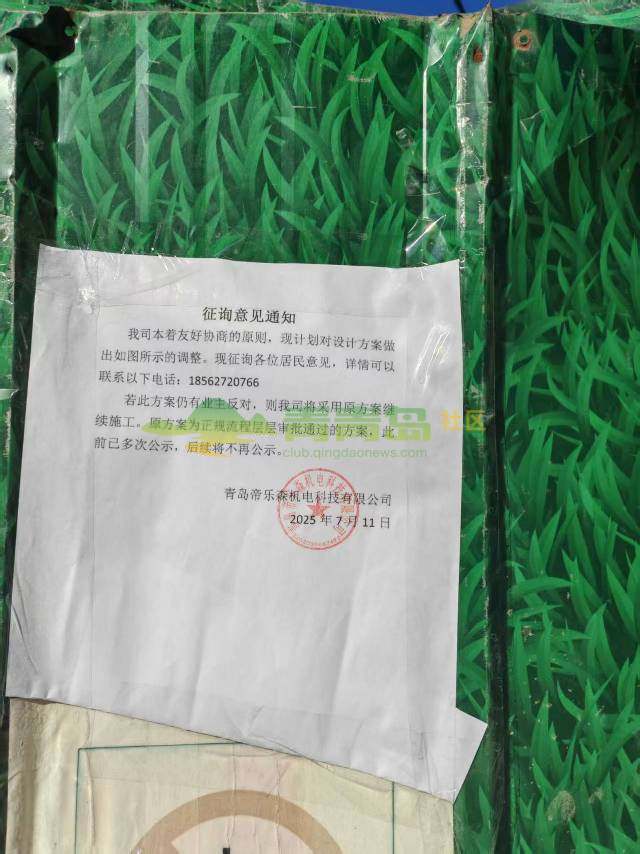 征询意见通知
我司本着友好协商的原则，现计划对设计方案做
出如图所示的调整。现征询各位居民意见，详情可以
联系以下电话：18562720766
若此方案仍有业主反对，则我司将采用原方案继
续施工。原方案为正规流程层层审批通过的方案，此
前已多次公示，后续将不再公示。
青青岛 社区
club.qingdaonews.com
青岛帝乐森机电科技有限公司
2025 年 7 月 11 日